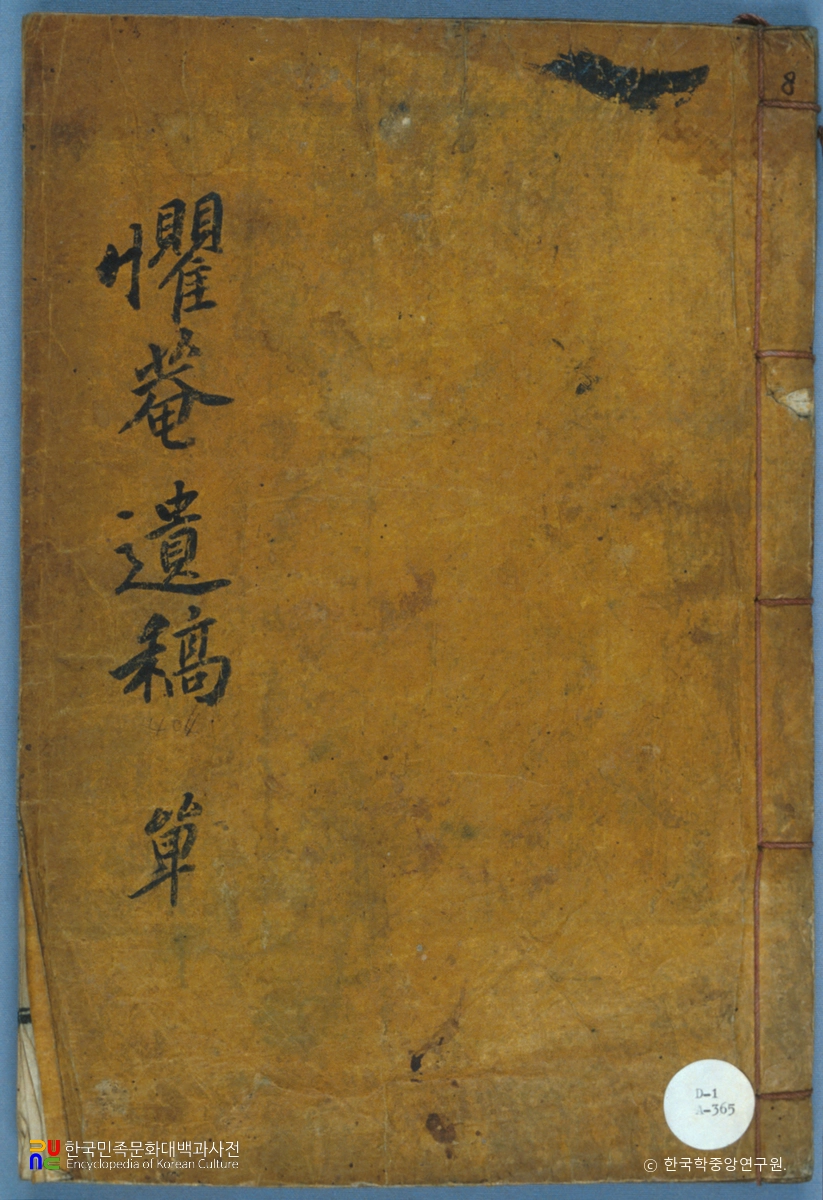 懼菴遺稿 單
8
D-1
A-365
한국민족문화대백과사전
Encyclopedia of Korean Culture
ⓒ 한국학중앙연구원.